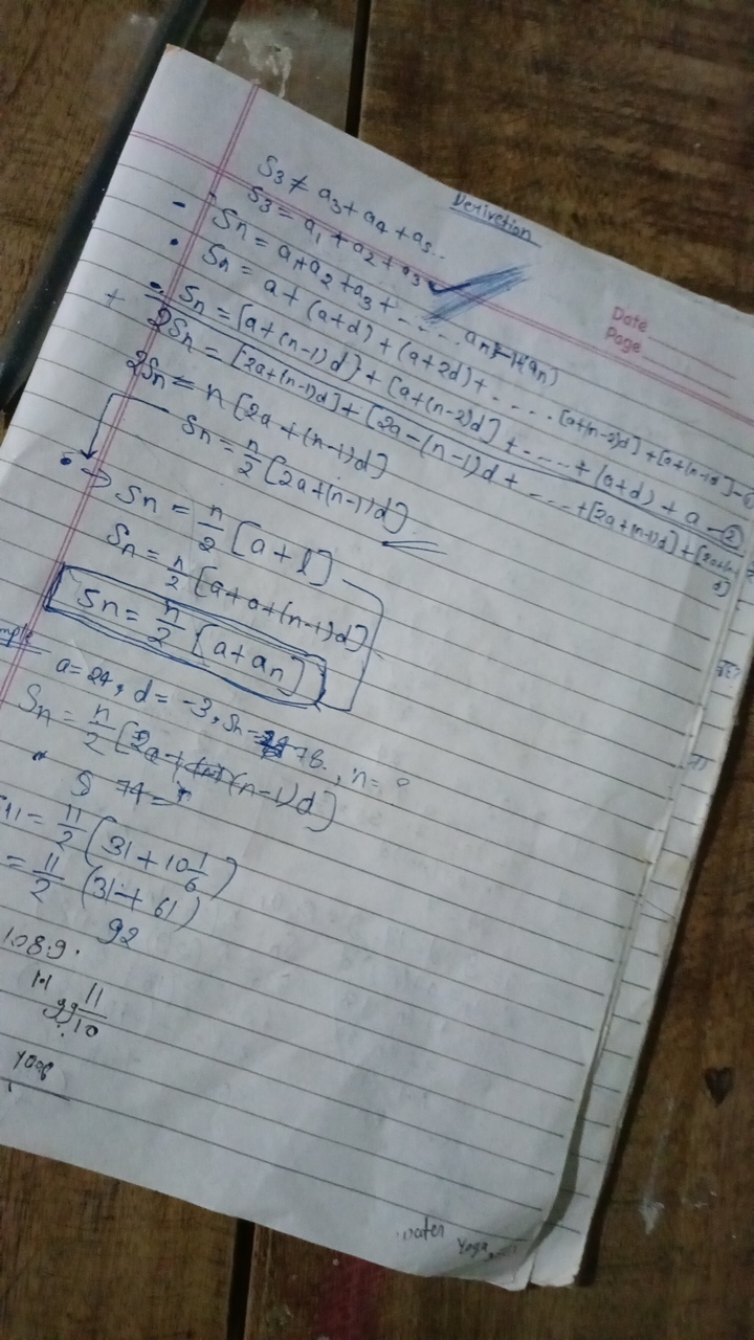 Derivetion
S3 ≠ a3 + a4 + a5..
S3 = a1 + a2 + a3 ✓
Date
Page
Sn = a+a2+a3+ ..... an-1+(an)
Sn = a + (a+d) + (a+2d) + ..... [a+(n-2)d] + [a+(n-1)d]
+ Sn = [a+(n-1)d] + [a+(n-2)d] + ..... + (a+d) + a - ②
2Sn = [2a+(n-1)d] + [2a-(n-1)d + ..... + [2a+(n-1)d] + [2a+(n-
d]
2Sn = n[2a+(n-1)d]
Sn = n/2 [2a+(n-1)d]
⇒ Sn = n/2 [a+l]
Sn = n/2 [a+a+(n-1)d]
Sn = n/2 [a+an]
a=24, d=-3, Sn= 78., n=?
Sn = n/2 [2a+(n-1)d]
S 74 =
11 = 11/2 (31 + 10 1/6)
= 11/2 (31+61)
92
1089.
11
99 10
Yoga
Yoga